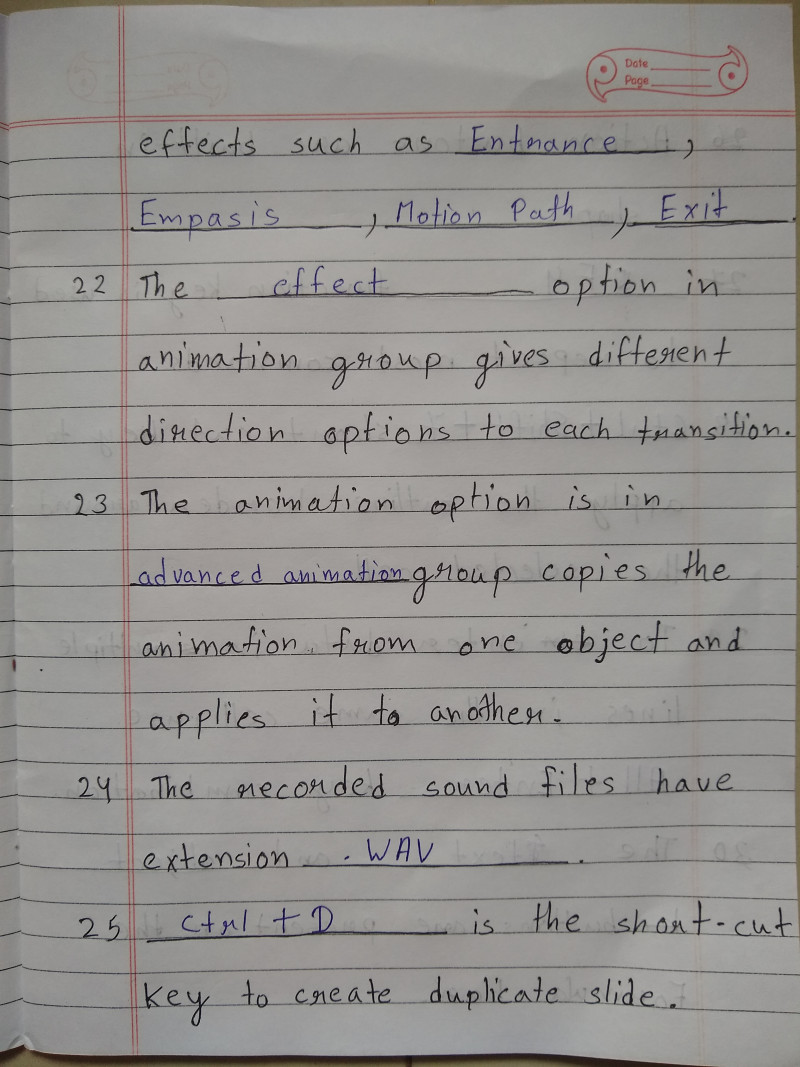 Date
Page
effects such as Entrance,
Empasis, Motion Path, Exit.
22 The effect option in
animation group gives different
direction options to each transition.
23 The animation option is in
advanced animation group copies the
animation. from one object and
applies it to another.
24 The recorded sound files have
extension .WAV.
25 Ctrl + D is the short-cut
key to create duplicate slide.